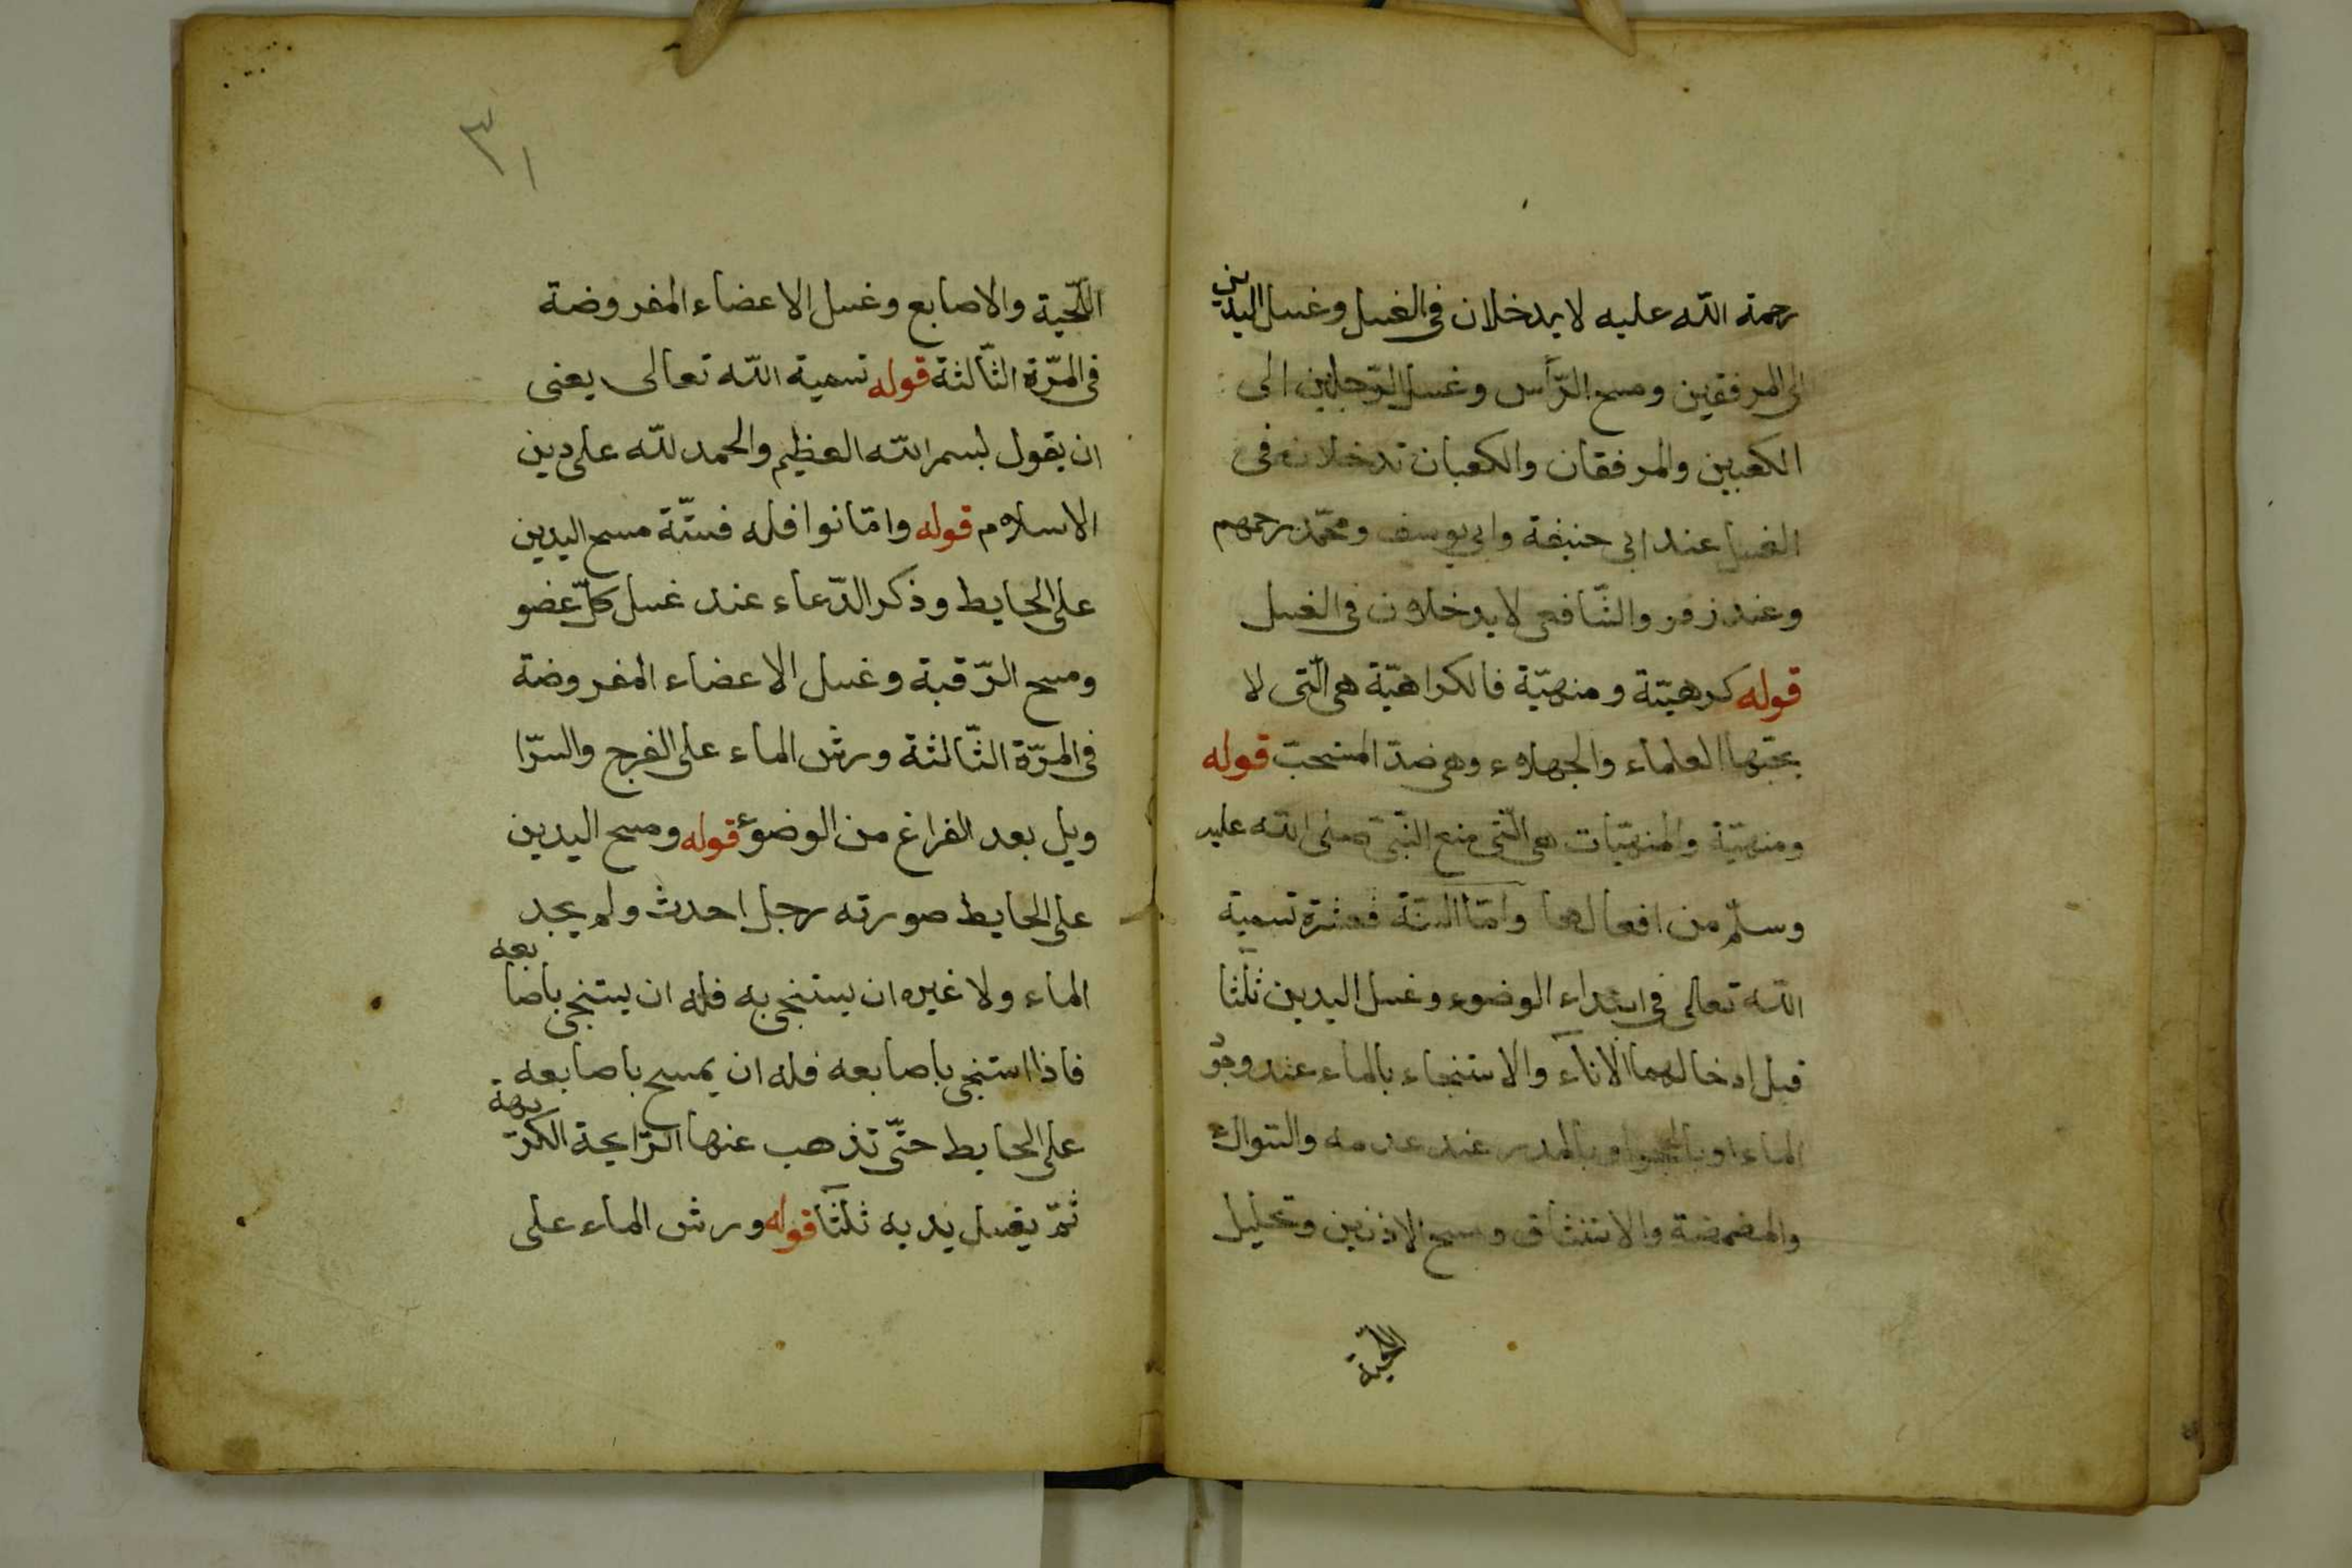 رحمة الله عليه لا يدخلان فى الغسل وغسل اليدين
الى المرفقين ومسح الرّأس وغسل الرّجلين الى
الكعبين والمرفقان والكعبان تدخلان فى
الغسل عند ابى حنيفة وابى يوسف ومحمّد رحمهم
وعند زفر والشّافعى لا يدخلان فى الغسل
قوله كرهيّة ومنهيّة فالكراهيّة هى الّتى لا
يحبّها العلماء والجهلاء وهى ضدّ المستحبّ قوله
ومنهيّة والمنهيّات هى الّتى منع النّبىّ صلى الله عليه
وسلّم من افعالها وامّا السنّة فعشرة تسمية
الله تعالى فى ابتداء الوضوء وغسل اليدين ثلثا
قبل ادخالهما الاناء والاستنجاء بالماء عند وجو
الماء او بالحجر او بالمدر عند عدمه والسّواك
والمضمضة والاستنشاق ومسح الاذنين وتخليل
اللّحية
٣١
اللّحية والاصابع وغسل الاعضاء المفروضة
فى المرّة الثّالثة قوله تسمية الله تعالى يعنى
ان يقول بسم الله العظيم والحمد لله على دين
الاسلام قوله وامّا نوافله فستّة مسح اليدين
على الحايط وذكر الدّعاء عند غسل كلّ عضو
ومسح الرّقبة وغسل الاعضاء المفروضة
فى المرّة الثّالثة ورش الماء على الفرج والسّرا
ويل بعد الفراغ من الوضوء قوله ومسح اليدين
على الحايط صورته رجل احدث ولم يجد
الماء ولا غيره ان يستنجى به فله ان يستنجى باصابعه
فاذا استنجى باصابعه فله ان يمسح باصابعه
على الحايط حتّى تذهب عنها الرّايحة الكريهة
ثمّ يغسل يديه ثلثا قوله ورش الماء على